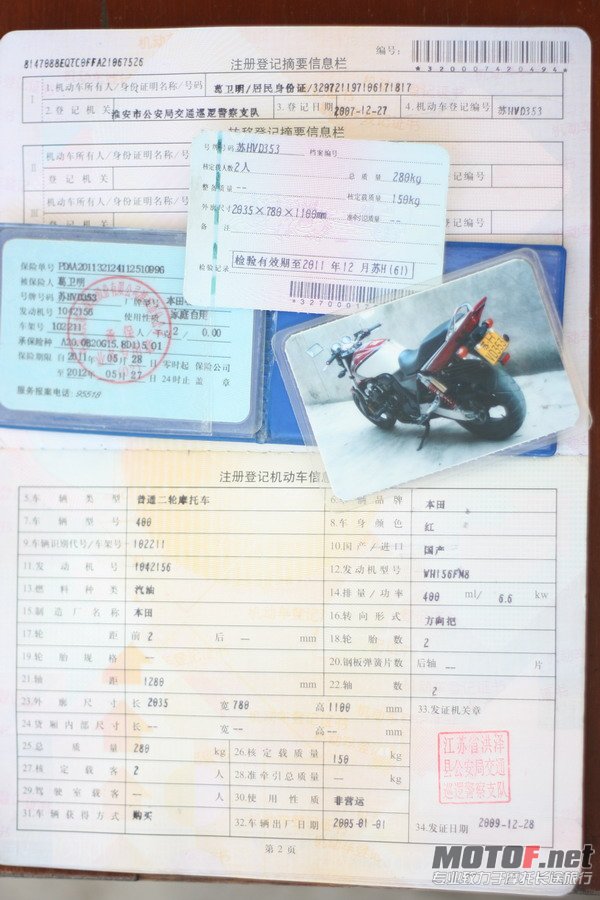 8147088EQTC0FFA21067526 注册登记摘要信息栏 编号:
*320007420494*
I 1.机动车所有人/身份证明名称/号码 葛卫明/居民身份证/320721197106171817
2.登记机关 淮安市公安局交通巡逻警察支队 3.登记日期 2007-12-27 4.机动车登记编号 苏HVD353
转移登记摘要信息栏
II 机动车所有人/身份证明名称/号码
登记机关 机动车登记编号
III 机动车所有人/身份证明名称/号码
登记机关 机动车登记编号
号牌号码 苏HVD353 档案编号
核定载人数 2人 总质量 280kg
整备质量 -- 核定载质量 150kg
外廓尺寸 2035×780×1100mm 准牵引总质量 --
备注
检验记录 检验有效期至2011年12月苏H(61)
保险单号 PDAA201132124112510996
被保险人 葛卫明
号牌号码 苏HVD353 牌型号 本田
发动机号 1042156 使用性质 家庭自用
车架号 102211 人/千克 2 / 0.00
承保险种
保险期限 自2011年05月28日零时起 保险公司
至2012年05月27日24时止 盖章
服务报案电话: 95518
注册登记机动车信息
5.车辆类型 普通二轮摩托车 本田
7.车辆型号 400 8.车身颜色 红
9.车辆识别代号/车架号 102211 10.国产/进口 国产
11.发动机号 1042156 12.发动机型号 WH156FM8
13.燃料种类 汽油 14.排量/功率 400 ml/ 6.6 kw
15.制造厂名称 本田 16.转向形式 方向把
17.轮距 前2 后-- mm 18.轮胎数 2
19.轮胎规格 -- 20.钢板弹簧片数 后轴 -- 片
21.轴距 1280 mm 22.轴数 2
23.外廓尺寸 长 2035 宽 780 高 1100 mm 33.发证机关章
24.货厢内部尺寸 长-- 宽-- 高-- mm
25.总质量 280 kg 26.核定载质量 150 kg
27.核定载客 2 人 28.准牵引总质量 -- kg
29.驾驶室载客 -- 人 30.使用性质 非营运
31.车辆获得方式 购买 32.车辆出厂日期 2005-01-01 34.发证日期 2009-12-28
江苏省洪泽
县公安局交通
巡逻警察支队
第2页
MOTOF.net
专业致力于摩托长途旅行